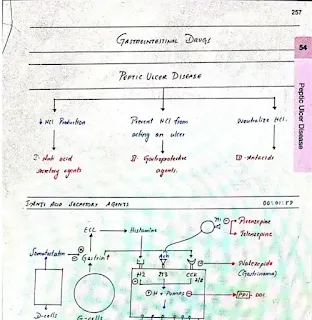 257
54
Peptic Ulcer Disease
GASTROINTESTINAL DRUGS
PEPTIC ULCER DISEASE
↓ HCl Production
Prevent HCl from
acting on ulcer
Neutralize HCl.
secretory agents
agents.
Antacids
ANTI ACID SECRETORY AGENTS
ECL
Histamine
M1
Pirenzepine
Telenzepine
Somatostatin
Gastrin
Ach
H2
M3
CCK
Proglumide
(Gastrinoma)
H+ PUMPS
PPI
D-cells
G-cells